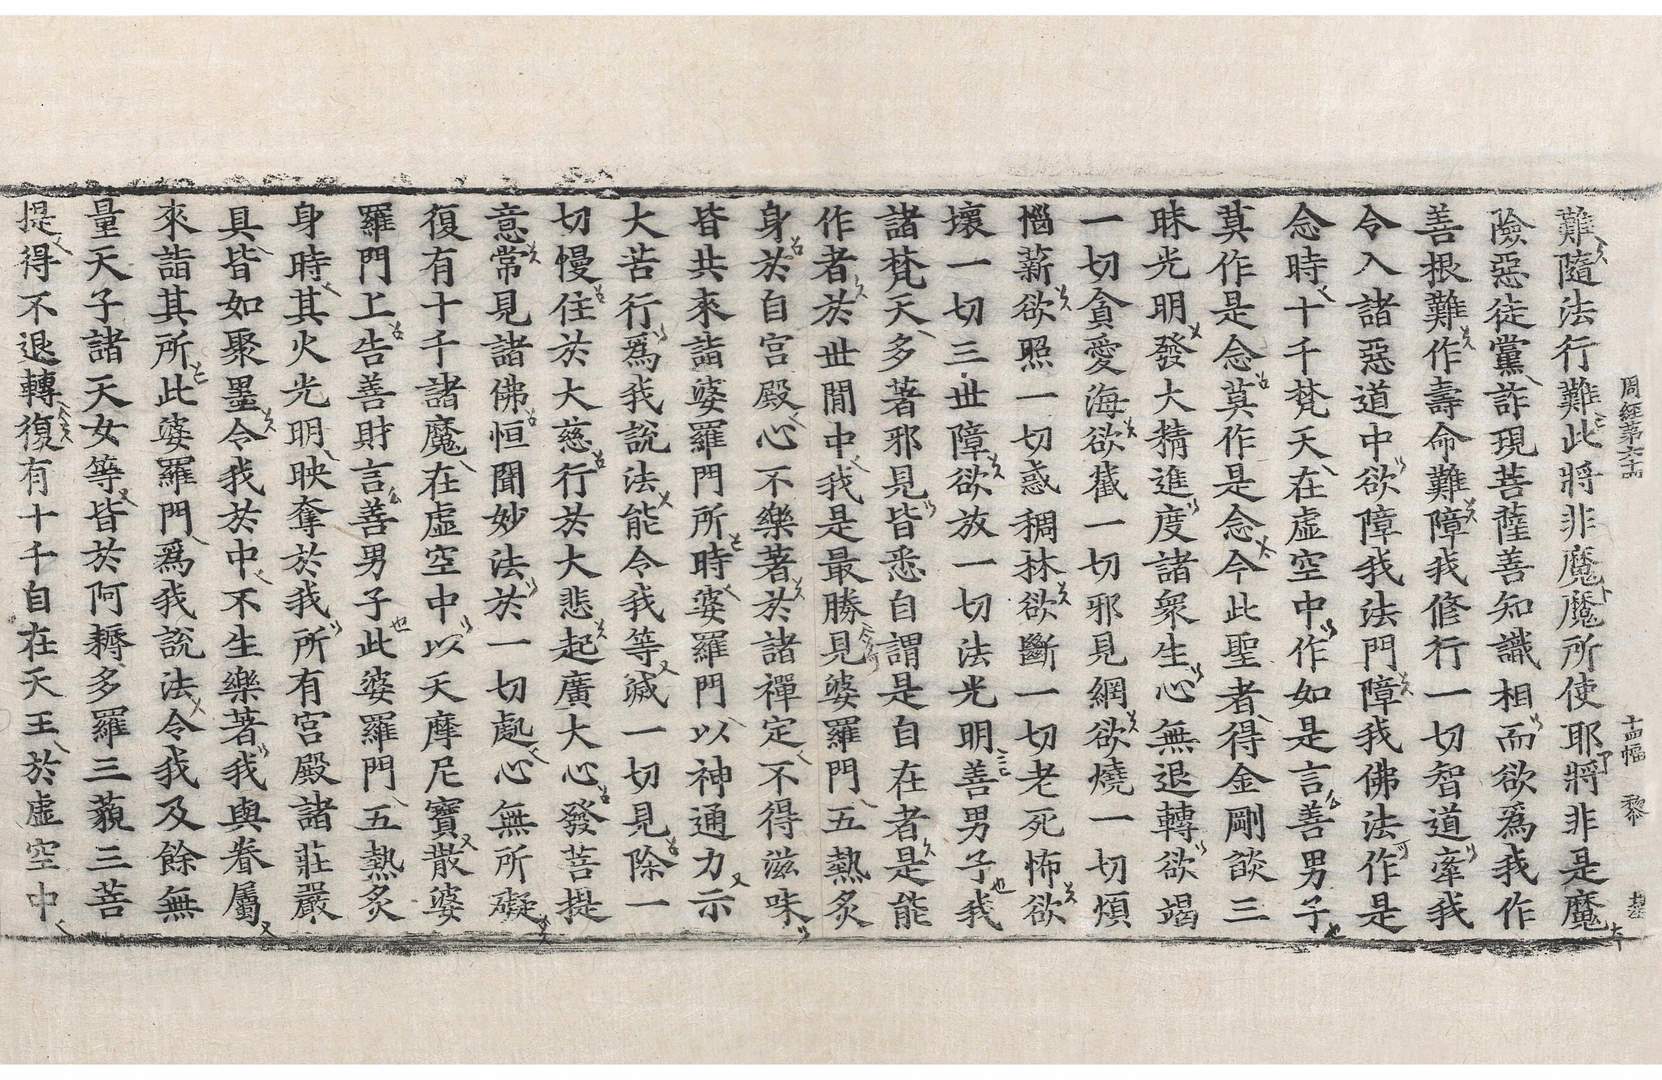 周經第六十四 十四幅 黎
難隨法行難此將非魔魔所使耶將非是魔
險惡徒黨詐現菩薩善知識相而欲爲我作
善根難作壽命難障我修行一切智道牽我
令入諸惡道中欲障我法門障我佛法作是
念時十千梵天在虛空中作如是言善男子
莫作是念莫作是念今此聖者得金剛談三
昧光明發大精進度諸衆生心無退轉欲竭
一切貪愛海欲截一切邪見網欲燒一切煩
惱薪欲照一切惑稠林欲斷一切老死怖欲
壞一切三世障欲放一切法光明善男子我
諸梵天多著邪見皆悉自謂是自在者是能
作者於世間中我是最勝見婆羅門五熱炙
身於自宮殿心不樂著於諸禪定不得滋味
皆共來詣婆羅門所時婆羅門以神通力示
大苦行爲我說法能令我等滅一切見除一
切慢住於大慈行於大悲起廣大心發菩提
意常見諸佛恒聞妙法於一切處心無所礙
復有十千諸魔在虛空中以天摩尼寶散婆
羅門上告善財言善男子此婆羅門五熱炙
身時其火光明映奪於我所有宮殿諸莊嚴
具皆如聚墨令我於中不生樂著我與眷屬
來詣其所此婆羅門爲我說法令我及餘無
量天子諸天女等皆於阿耨多羅三藐三菩
提得不退轉復有十千自在天王於虛空中